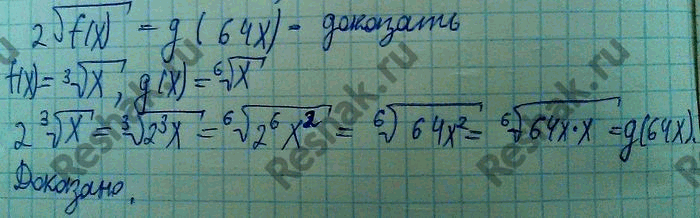 2√f(x) = g(64x) - доказать
f(x)=³√x, g(x)=⁶√x
2³√x = ³√2³x = ⁶√2⁶x² = ⁶√64x² = ⁶√64x·x = g(64x).
Доказано.
Reshak.ru
Reshak.ru
Reshak.ru